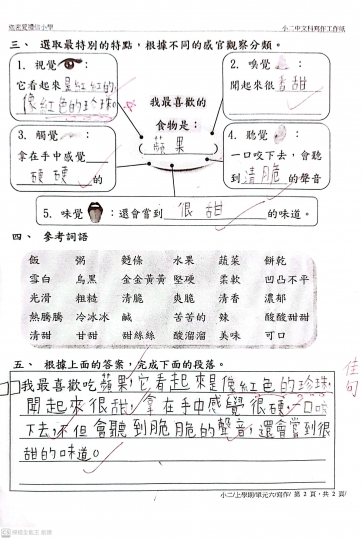 小二中文科寫作工作紙
三、 選取最特別的特點，根據不同的感官觀察分類。
1. 視覺：
它看起來是紅紅的
像紅色的珍珠。
2. 嗅覺：
聞起來很香甜
我最喜歡的
食物是：
(蘋果)
3. 觸覺：
拿在手中感覺
硬硬的
4. 聽覺：
一口咬下去，會聽
到清脆的聲音
5. 味覺：還會嘗到很甜的味道。
四、 參考詞語
飯 粥 麵條 水果 蔬菜 餅乾
雪白 烏黑 金金黃黃 堅硬 柔軟 凹凸不平
光滑 粗糙 清脆 爽脆 清香 濃郁
熱騰騰 冷冰冰 鹹 苦苦的 辣 酸酸甜甜
清甜 甘甜 甜絲絲 酸溜溜 美味 可口
五、 根據上面的答案，完成下面的段落。
佳句
我最喜歡吃蘋果，它看起來是像紅色的珍珠，
聞起來很甜，拿在手中感覺很硬，一口咬
下去，不但會聽到脆脆的聲音，還會嘗到很
甜的味道。
小二/上學期/單元六/寫作/ 第 2 頁，共 2 頁/